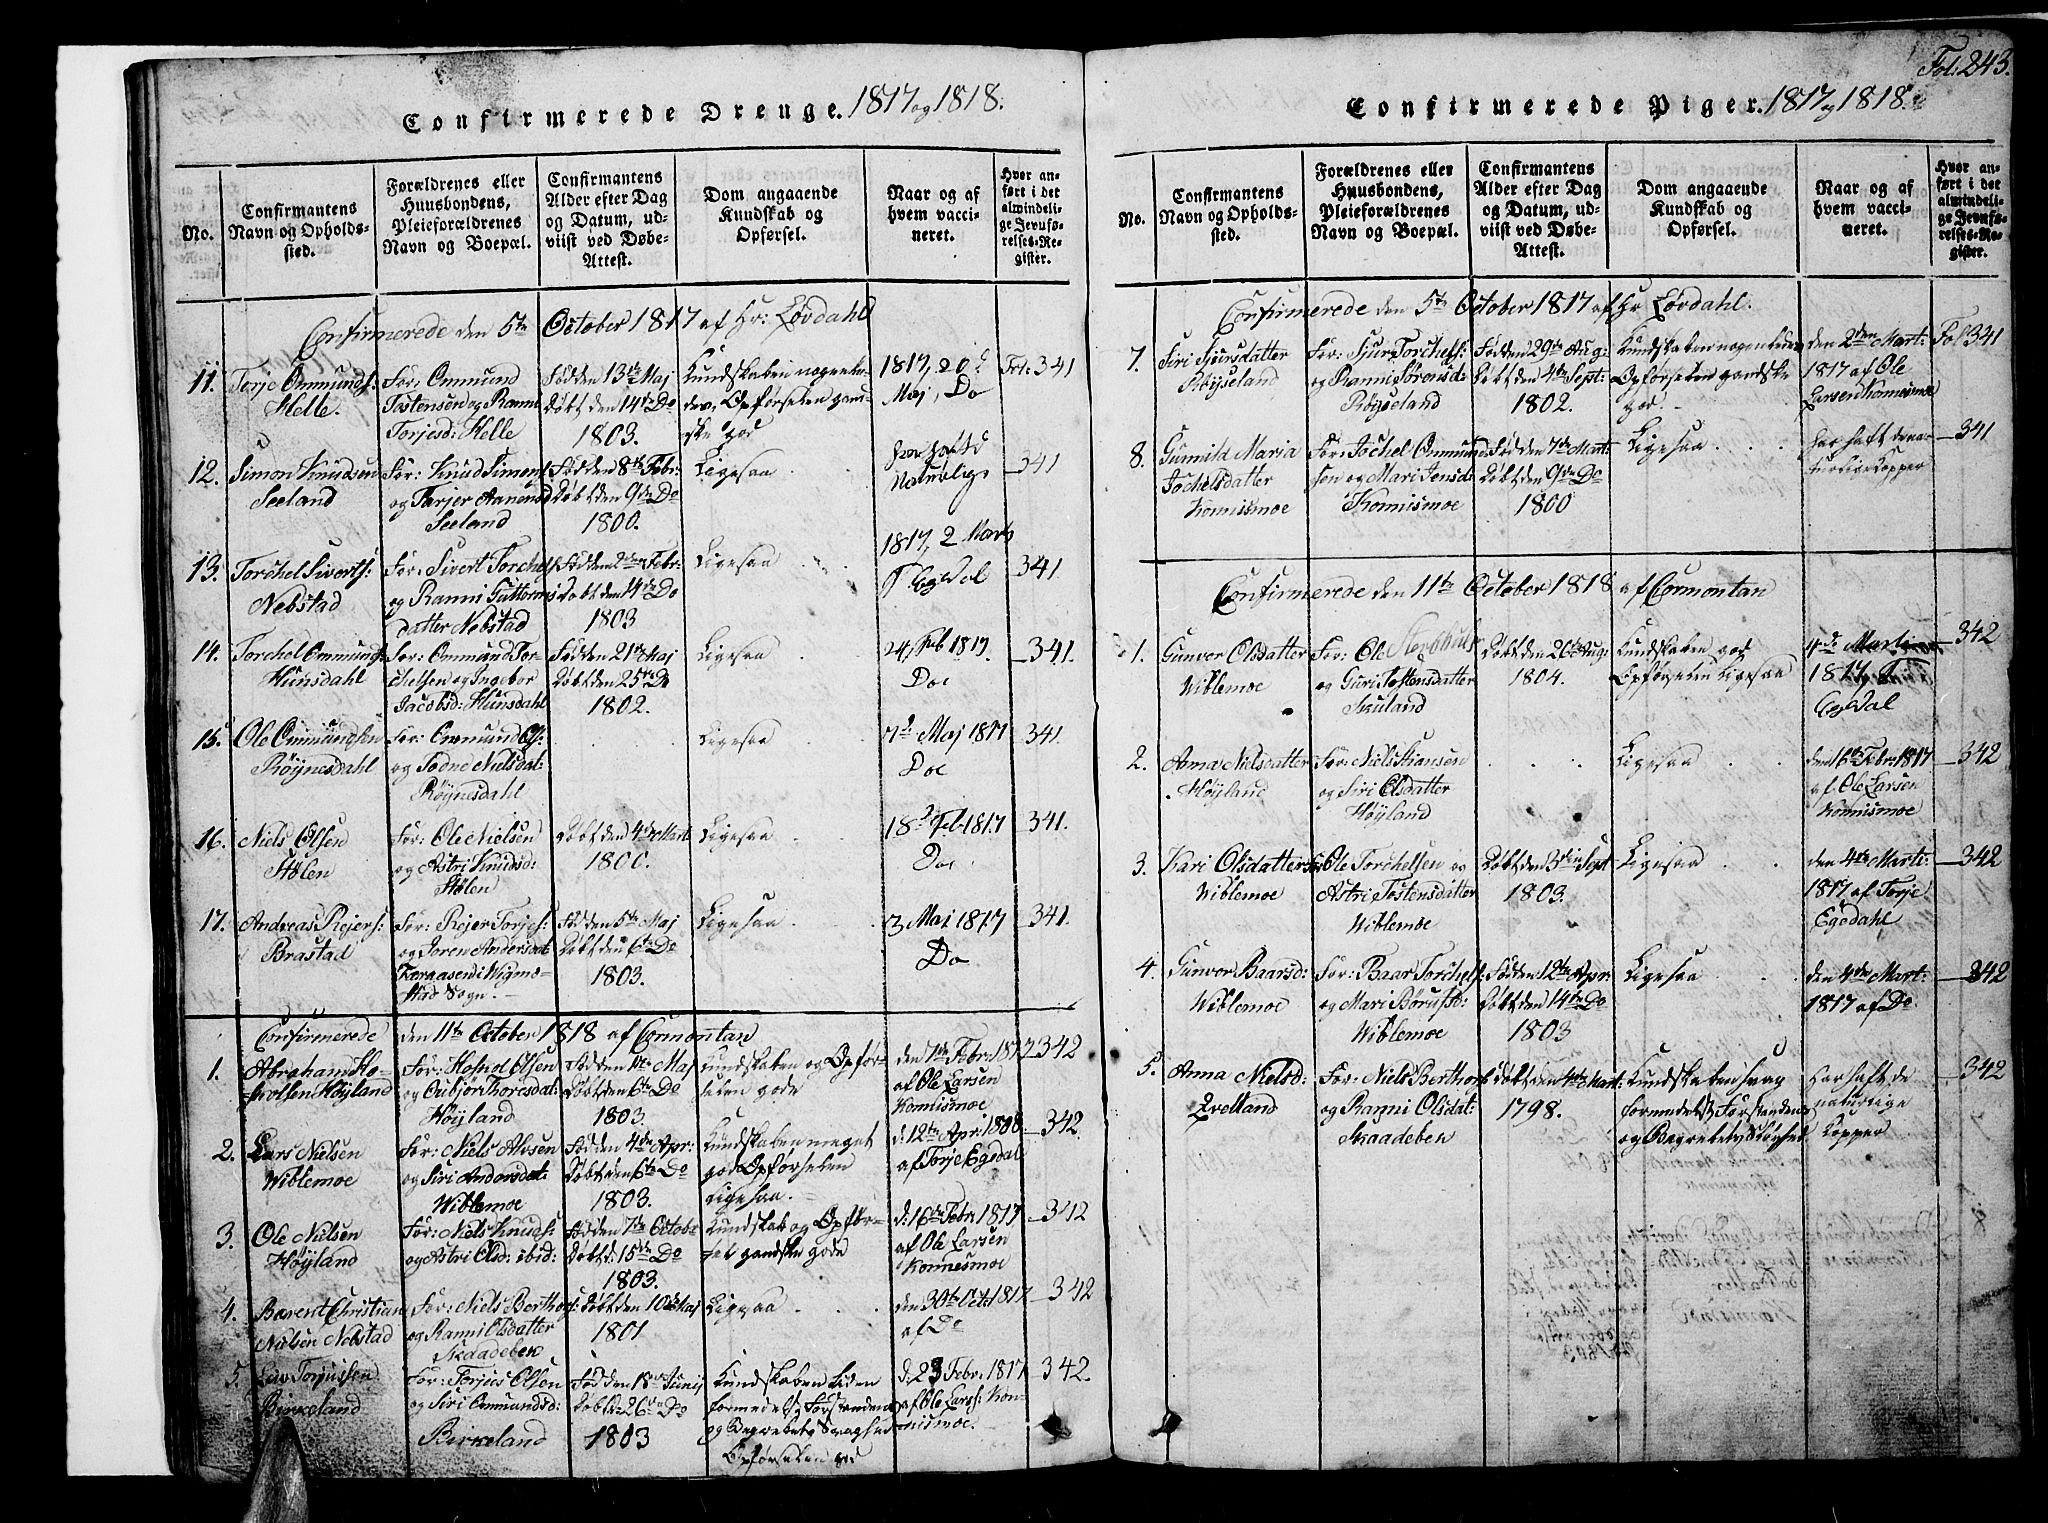 Confirmerede Drenge. 1817 og 1818.
No.
Confirmantens Navn og Opholdssted.
Forældrenes eller Huusbondens, Pleieforældrenes Navn og Boepæl.
Confirmantens Alder efter Dag og Datum, udviist ved Døbe-Attest.
Dom angaaende Kundskab og Opførsel.
Naar og af hvem vaccineret.
Hvor anført i det almindelige Jevnførelses-Register.
Confirmerede den 5te October 1817 af Hr: Løvdahl
11. Torje Ommunds: Helle.
For: Ommund Tostensen og Ranni Torjesd: Helle
Født den 13te Maj Døbt den 14de Do 1803.
Opførselen gandske god
1817, 20d Maj, Do
Fol: 341
12. Simon Knudsen Seeland
For: Knud Simens: og Tarjer Aanensd: Seeland
Født den 8te Febr: Døbt den 9de Do 1800.
Ligesaa
341
13. Torchel Siverts: Nebstad
For: Sivert Torchels: og Ranni Guttorms datter Nebstad
Født den 2den Febr: Døbt den 14de Do 1803
Ligesaa
1817, 2 Marts Egdal
341
14. Torchel Ommunds: Hunsdahl
For: Ommund Torchelsen og Ingebor Jacobsd: Hunsdahl
Født den 21de Maj Døbt den 25de Do 1802.
Ligesaa
24 Feb 1817. Do
341.
15. Ole Ommundsen Røynesdahl
For: Ommund Ols: og Todne Nielsdat: Røynesdahl
Ligesaa
7d Maj 1817 Do
341.
16. Niels Olsen Stølen
For: Ole Nielsen og Astri Knudsd: Stølen
Døbt den 4de Marti 1800.
Ligesaa
18d Feb 1817 Do
341.
17. Andreas Rejers: Brastad
For: Rejer Torjes: og Soren Andersdat:
Sogn.
Født den 5te Maj Døbt den 6te Do 1803.
Ligesaa
3 Maj 1817 Do
341.
Confirmerede den 11te October 1818 af Cormontan
1. Abraham Hosvolsen Høyland
Høyland
Født den 1ste Maj Døbt den 6te Do 1803.
Kundskaben og Opførselen gode
den 1ste Febr: 1817 af Ole Larsen Konnismoe
342
2. Lars Nielsen Wiblemoe
For: Niels Alvsen og Siri Andersdat: Wiblemoe
Født den 4de Apr: Døbt den 6te Do 1803.
Kundskaben meget god Opførselen Ligesaa.
d: 12te Apr: 1808 af Torje Egedal
342.
3. Ole Nielsen Høyland
For: Niels Knuds: og Astri Olsd: ibid:
Født den 7de Octobr Døbt d: 15de Do 1803.
Kundskab og Opførsel gandske gode
d: 16de Febr: 1817 af Ole Larsen Konnesmoe
342
4. Barent Christian Nielsen Nebstad
For: Niels Berthors: og Ranni Olsdatter Skaadeben
Døbt den 10de Maj 1801
Ligesaa
den 30te Octr: 1817 af Do
342
5. Torjussen Birkeland
For: Torjus Olsen og Siri Ommundsd: Birkeland
Født den 18de Junij Døbt d: 26de Do 1803
Kundskaben liden formedelst Forstandens og Begrebets Svaghed Opførselen god
d: 23 Febr: 1817 af Ole Lars: Konnismoe.
342.
Fol: 243.
Confirmerede Piger. 1817 og 1818.
No.
Confirmantens Navn og Opholdssted.
Forældrenes eller Huusbondens, Pleieforældrenes Navn og Boepæl.
Confirmantens Alder efter Dag og Datum, udviist ved Døbe-Attest.
Dom angaaende Kundskab og Opførsel.
Naar og af hvem vaccineret.
Hvor anført i det almindelige Jevnførelses-Register.
Confirmerede den 5te October 1817 af Hr Løvdahl.
7. Siri Sjursdatter Røyseland
For: Sjur Torchels: og Ranni Sørensd: Røyseland
Født den 29de Aug: Døbt den 4de Sept: 1802.
Opførselen gandske god.
den 2den Mart: 1817 af Ole Larsen Konnismoe
Fol 341
8. Gunnild Maria Jochelsdatter Konnismoe
For: Jochel Ommundsen og Mari Jensd: Konnismoe
Født den 7de Mart: Døbt den 9de Do 1800
Ligesaa
har haft de naturlige Kopper
341
Confirmerede den 11te October 1818 af Cormontan
1. Gunvor Olsdatter Wiblemoe
For: Ole og Guri Tostensdatter Skuland
Døbt den 26de Aug: 1804.
Kundskaben god Opførselen Ligesaa
4de Marti 1817 Egdal
342
2. Anna Nielsdatter Høyland
For: Niels Hansen og Siri Olsdatter Høyland
Ligesaa
den 16te Febr: 1817 af Ole Larsen Konnismoe
342
3. Kari Olsdatter Wiblemoe
Ole Torchelsen og Astri Tostensdatter Wiblemoe
Døbt den 3die Sept 1803.
Ligesaa
den 4de Marti: 1817 af Torje Egedahl
342
4. Gunvor Baarsd: Wiblemoe
For: Baar Torchels: og Mari Wiblemoe
Født den 12te Apr: Døbt den 14de Do 1803
Ligesaa
den 4de Mart: 1817 af Do
342
5. Anna Nielsd: Qvelland
For: Niels Berthors: og Ranni Olsdat: Skaadeben
Døbt den 4de Mart: 1798.
Kundskaben svag formedelst Forstandens og Begrebets Sløvhed
Har haft de naturlige Kopper
342